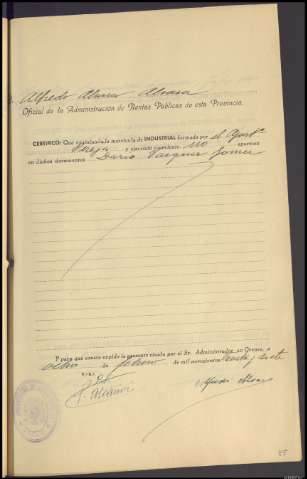 Alfredo Alvarez Alvarez
Oficial de la Administración de Rentas Públicas de esta Provincia
CERTIFICO: Que examinada la matrícula de INDUSTRIAL formada por el Ayunt.º
y ejercicio corriente no aparece
en dichos documentos Dario Vazquez Gomez
Y para que conste expido la presente visada por el Sr. Administrador, en Orense, a
ocho de febrero de mil novecientos treinta y siete
V.º B.º
Alfredo Alvarez